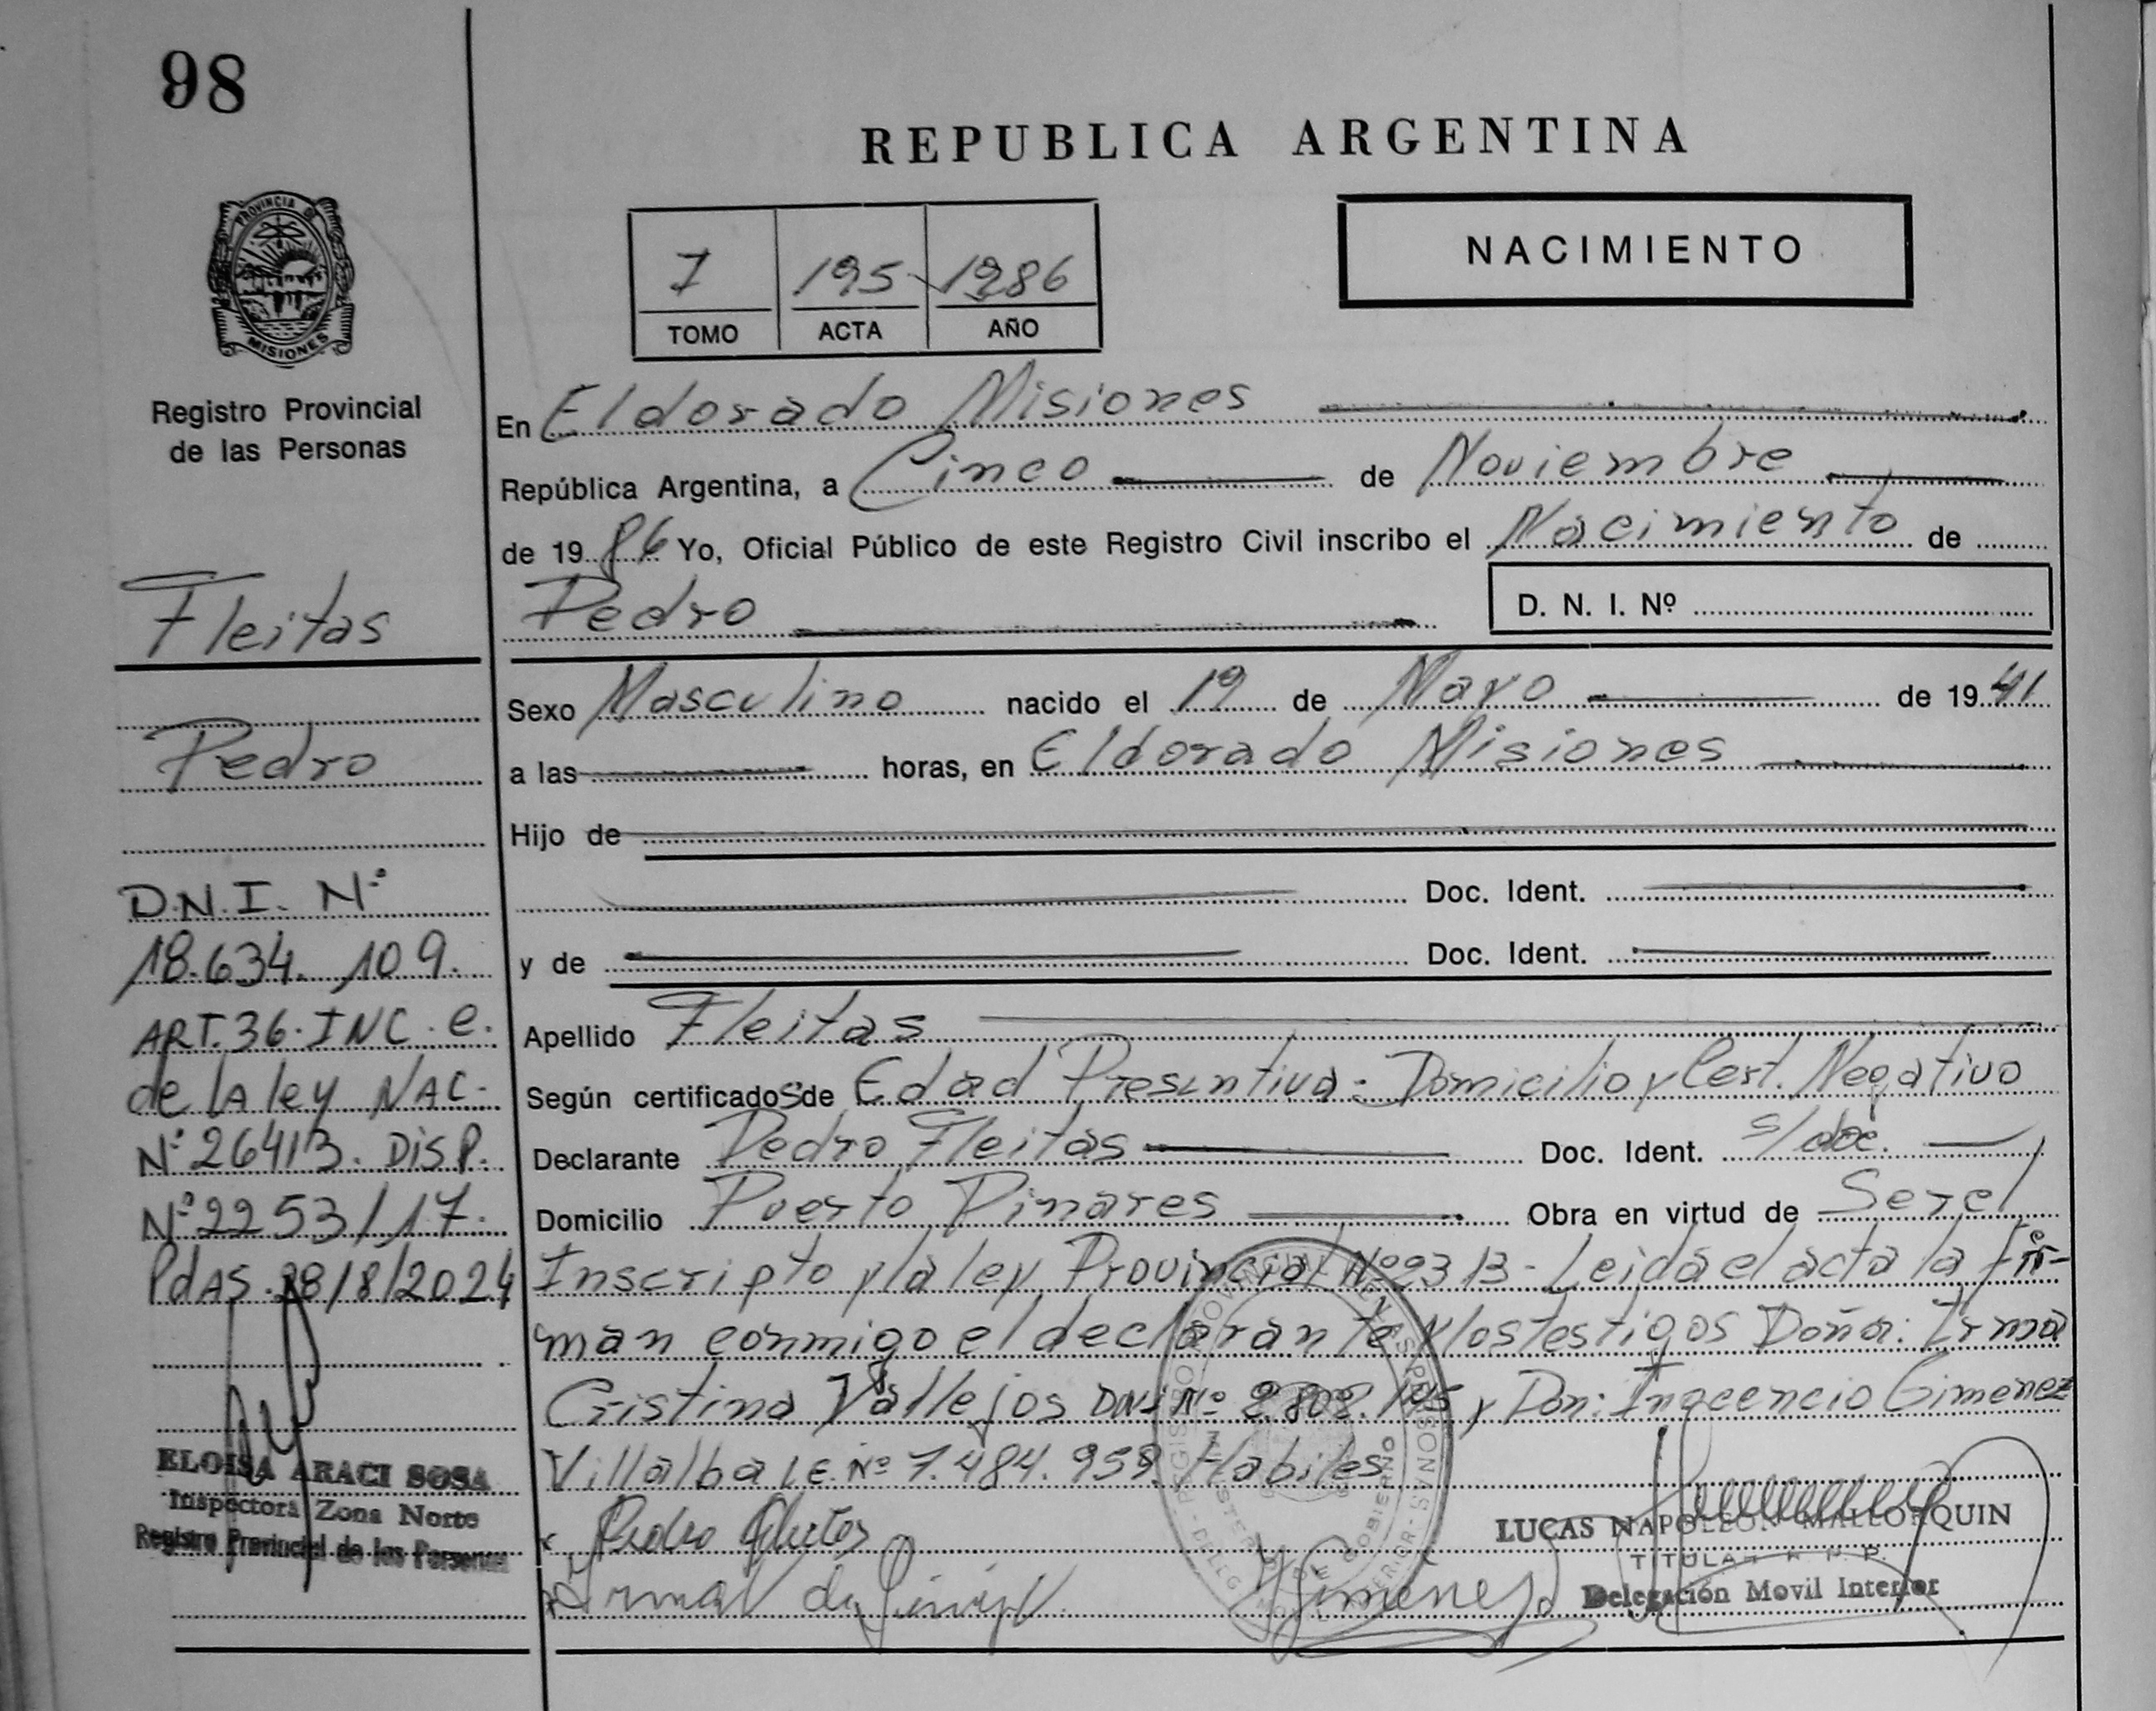 98
REPUBLICA ARGENTINA
PROVINCIA DE
MISIONES
Registro Provincial
de las Personas
I 195 1986
TOMO ACTA AÑO
NACIMIENTO
En Eldorado Misiones
República Argentina, a Cinco de Noviembre
de 1986 Yo, Oficial Público de este Registro Civil inscribo el Nacimiento de
Pedro
D. N. I. Nº
Sexo Masculino nacido el 19 de Mayo de 1941
a las horas, en Eldorado Misiones
Hijo de
Doc. Ident.
y de Doc. Ident.
Apellido Fleitas
Según certificados de Edad Presuntiva: Domicilio y Cert. Negativo
Declarante Pedro Fleitas Doc. Ident. s/doc.
Domicilio Puerto Pinares Obra en virtud de Ser el
Inscripto y la ley Provincial Nº 2313 - Leida el acta la fir-
man conmigo el declarante y los testigos Doña: Irma
Cristina Vallejos DNI Nº y Don: Inocencio Gimenez
Villalba LE. Nº 7.484.959. Habiles
Pedro
Gimenez
LUCAS NAPOLEON MALLORQUIN
TITULAR R. P. P.
Delegación Movil Interior
Fleitas
Pedro
D.N.I. Nº
18.634.109.
ART. 36. INC. e.
de la ley NAC-
Nº 26413. DISP.
Nº 2253/17.
PdAS. 28/8/2024
ELOISA ARACI SOSA
Inspectora Zona Norte
Registro Provincial de las Personas